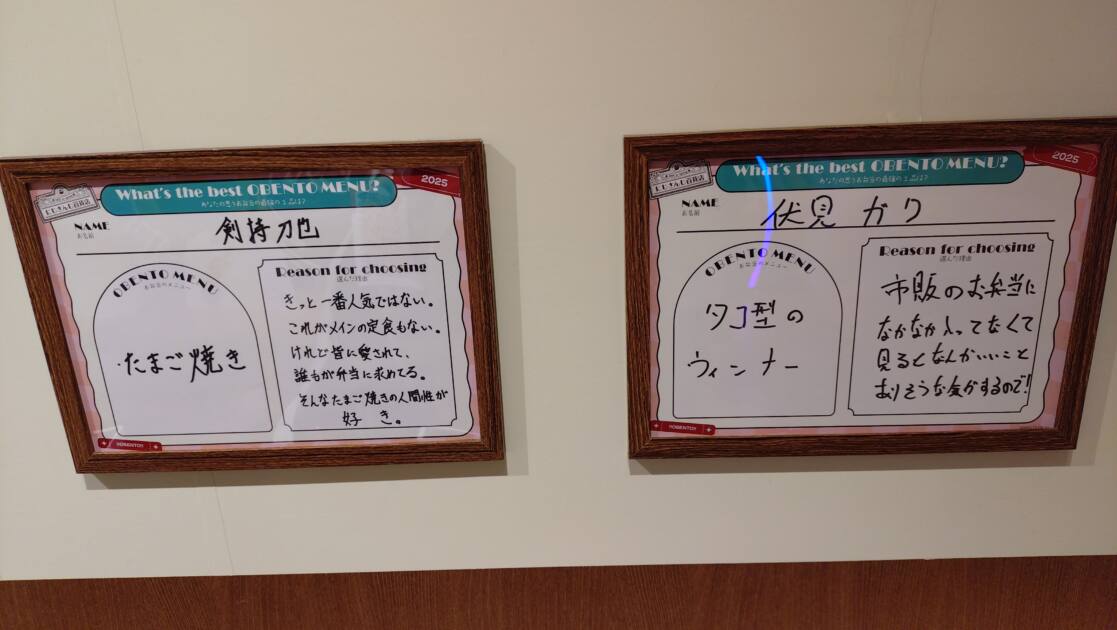 What's the best OBENTO MENU?
あなたの思うお弁当の最強の1品は?
2025
NAME
お名前
剣持刀也
OBENTO MENU
お弁当のメニュー
たまご焼き
Reason for choosing
選んだ理由
きっと一番人気ではない。
これがメインの定食もない。
けれど皆に愛されて、
誰もが弁当に求めてる。
そんなたまご焼きの人間性が
好き。
#OBENTO!!
What's the best OBENTO MENU?
あなたの思うお弁当の最強の1品は?
2025
NAME
お名前
伏見 ガク
OBENTO MENU
お弁当のメニュー
タコ型の
ウィンナー
Reason for choosing
選んだ理由
市販のお弁当に
なかなか入ってなくて
見るとなんかいいこと
ありそうな気がするので!
#OBENTO!!